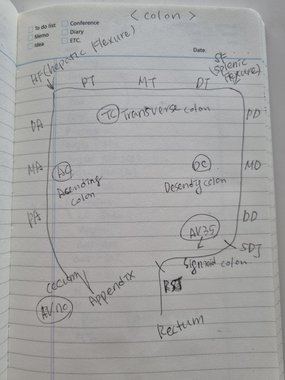 < colon >
To do list
Conference
Memo
Diary
Idea
ETC.
Date.
HF (hepatic flexure)
PT
MT
DT
SF
(splenic
flexure)
DA
TC Transverse colon
PD
MA
AC
DC
MD
Asending
colon
Desendig colon
PA
DD
AV35
SDJ
Sigmoid colon
cecum
Appendix
RSJ
AV 70
Rectum